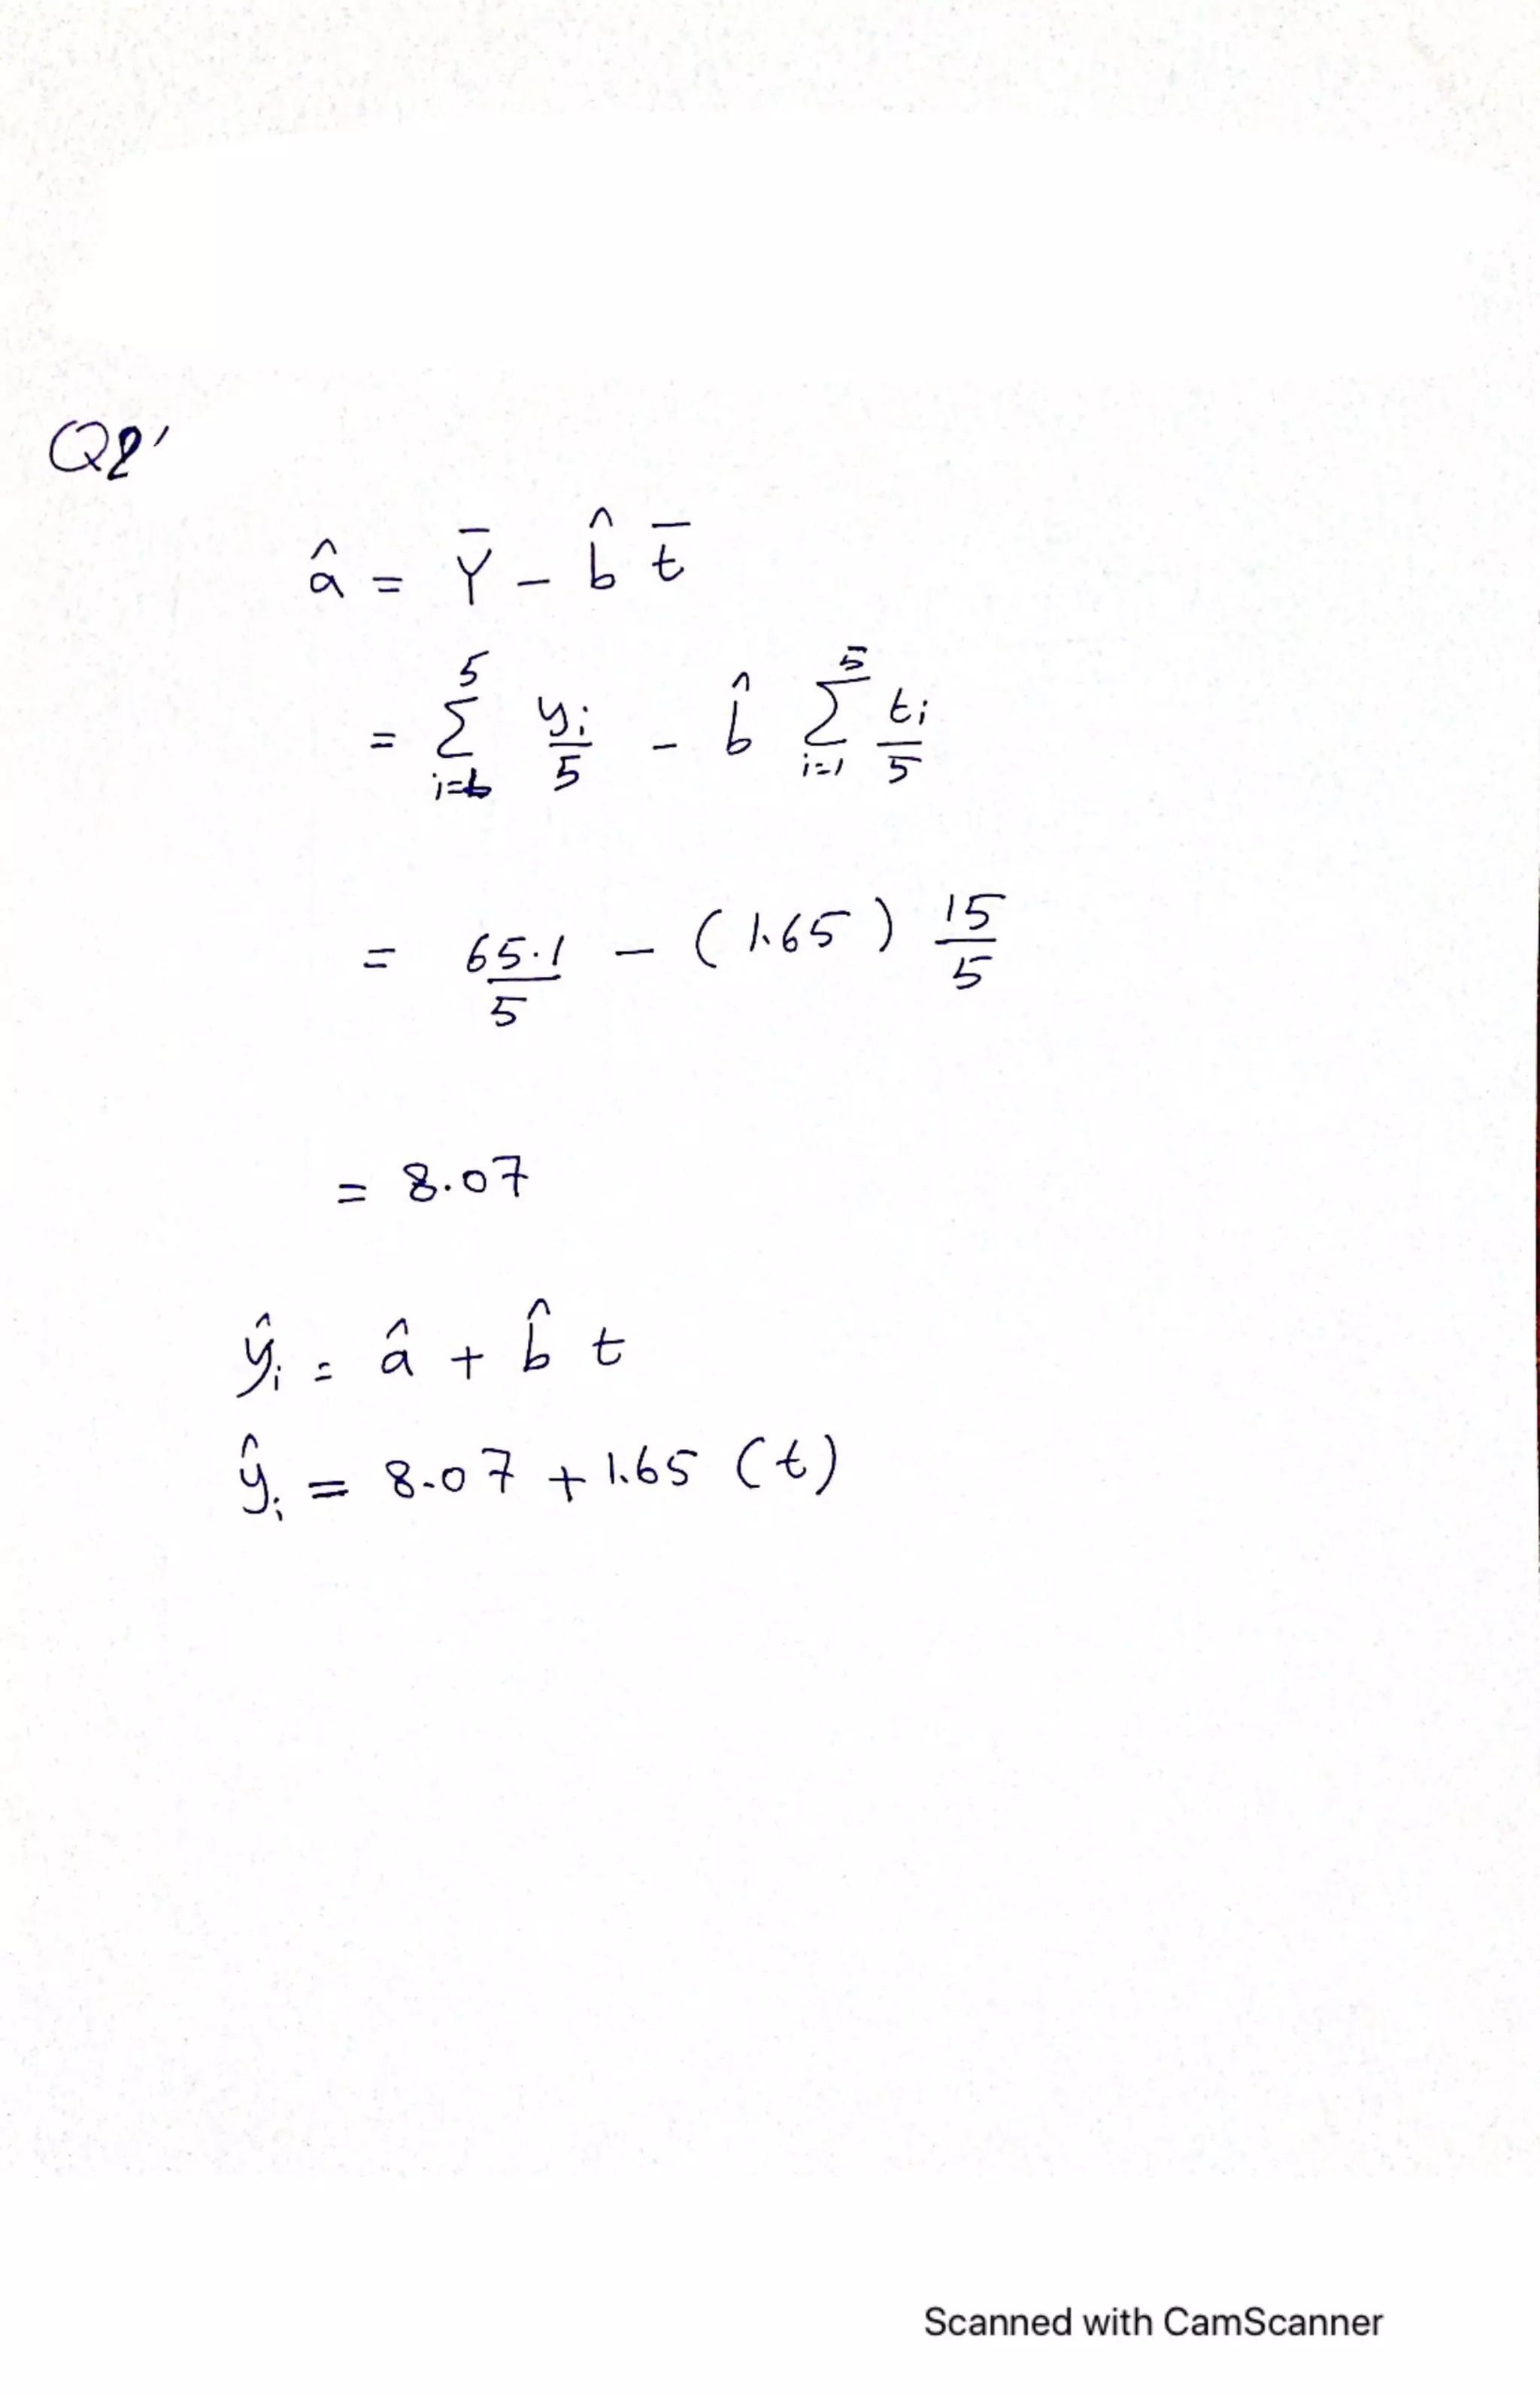 Q2'
â = Ȳ - b̂ t̄
= 5 Σ i=1 yi/5 - b̂ 5 Σ i=1 ti/5
= 65.1/5 - (1.65) 15/5
= 8.07
ŷi = â + b̂ t
ŷi = 8.07 + 1.65 (t)
Scanned with CamScanner